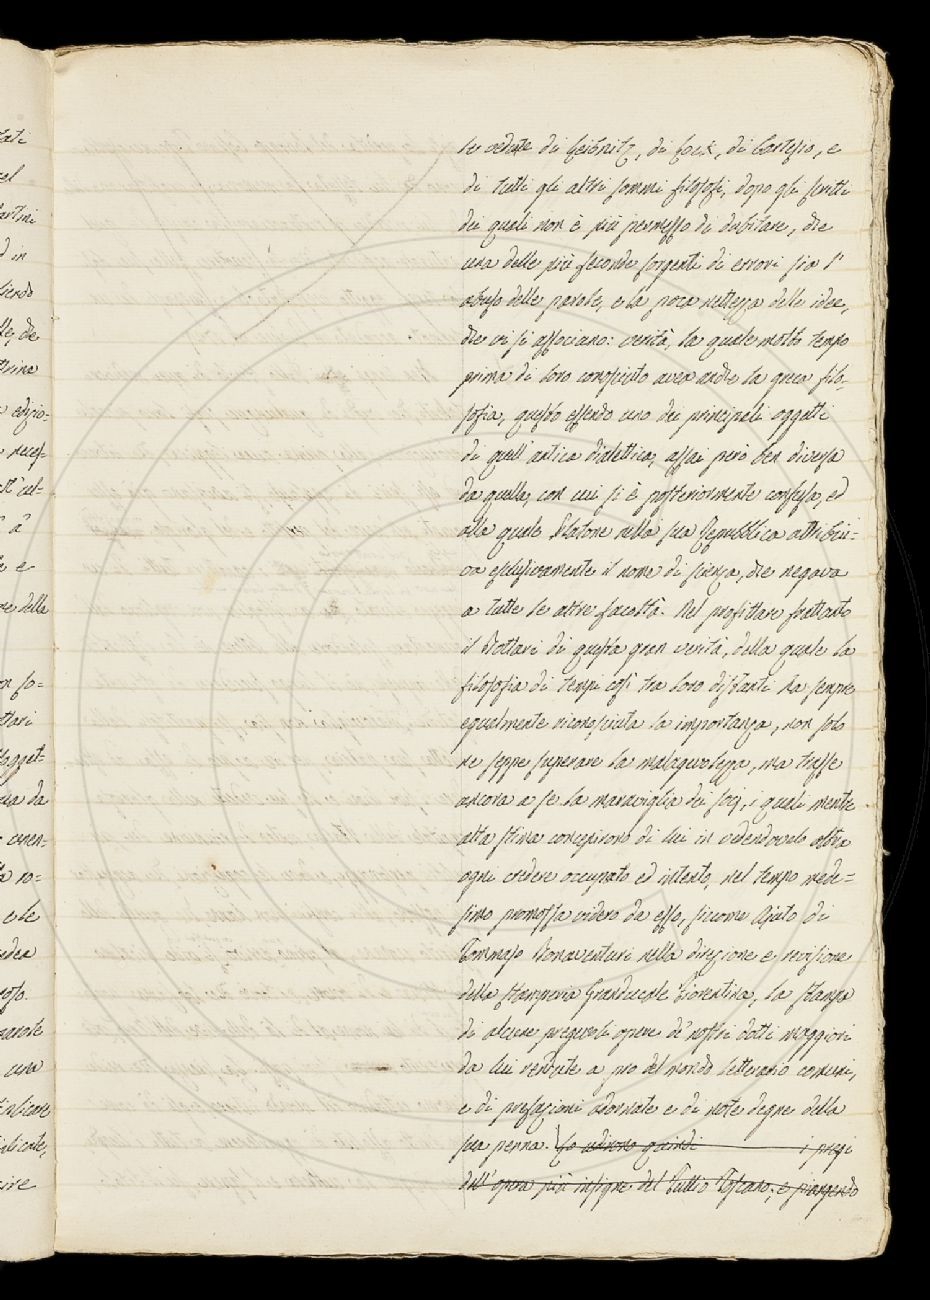 le vedute di Leibnitz, di Lock, di Cartesio, e
di tutti gli altri sommi filosofi, dopo gli scritti
dei quali non è più permesso di dubitare, che
una delle più feconde sorgenti di errori sia l'
abuso delle parole, e la poca nettezza delle idee,
che vi si associano: verità, la quale molto tempo
prima di loro conosciuto avea anche la greca filo-
sofia, questo essendo uno dei principali oggetti
di quell'antica dialettica, assai però ben diversa
da quella, con cui si è posteriormente confusa, ed
alla quale Platone nella sua Repubblica attribui-
va esclusivamente il nome di scienza, che negava
a tutte le altre facoltà. Nel profittare frattanto
il Bottari di questa gran verità, della quale la
filosofia di tempi così tra loro distanti ha sempre
egualmente riconosciuta la importanza, non solo
ne seppe superare la malagevolezza, ma trasse
ancora a se la maraviglia dei socj, i quali mentre
alta stima concepirono di lui in vedendovelo oltra
ogni credere occupato ed intento, nel tempo mede-
simo promossa videro da esso, siccome Ajuto di
Tommaso Bonaventuri nella direzione e revisione
della Stamperia Granducale Fiorentina, la stampa
di alcune pregevoli opere de' nostri dotti maggiori
da lui rendute a pro del mondo letterario comuni,
e di prefazioni adornate e di note degne della
sua penna. Lo udirono quindi i pregi
dell'opera più insigne del Tullio Toscano, e piangendo
tati
el
d in
che
trina
edizio-
a
e
re della
on so-
ttari
ria da
e le
una